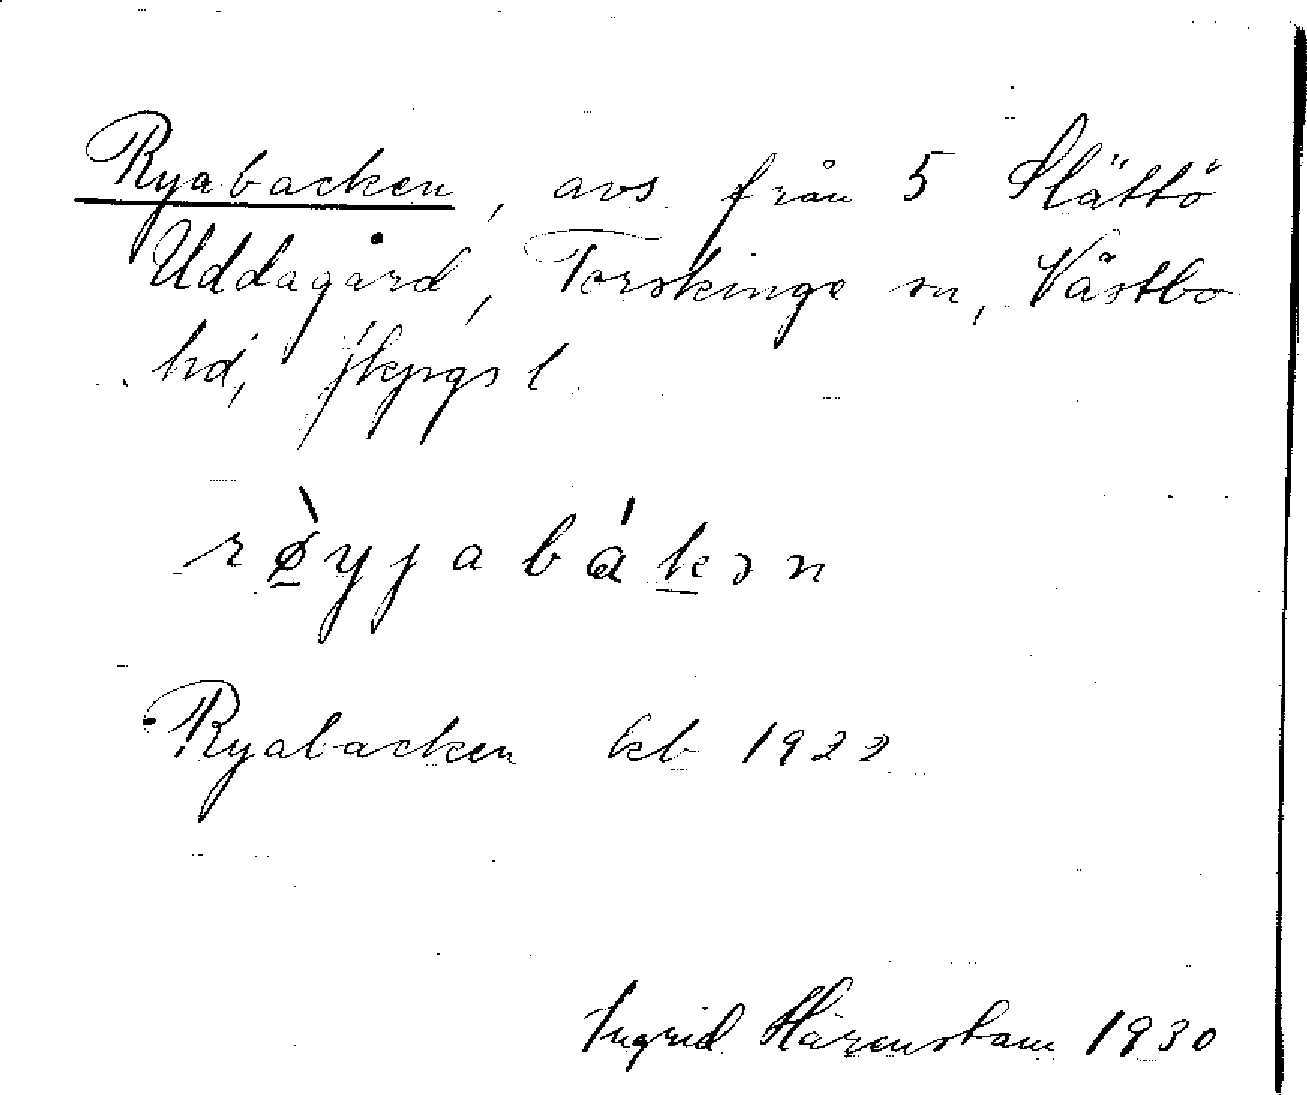 Ryabacken, avs. från 5 Slättö
Uddagård, Torskinge sn, Västbo
hd, Jkpgs l
rø̀yjabákən
Ryabacken kb 1922
Ingrid Härenstam 1930